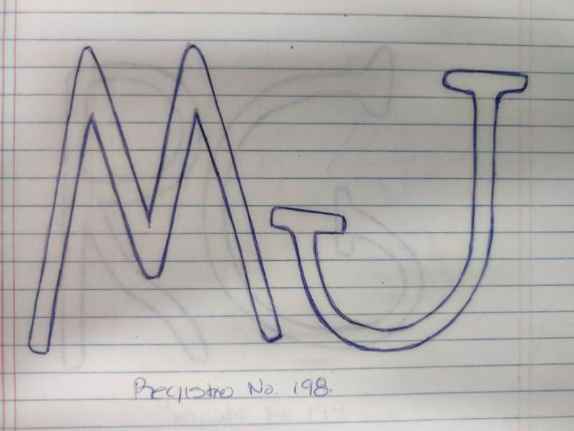 MJ
Registro No. 198.